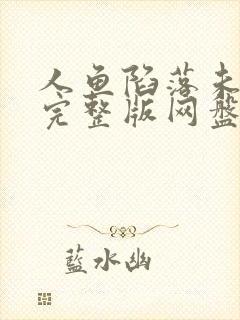 人鱼陷落未
完整版网盘
蓝水幽